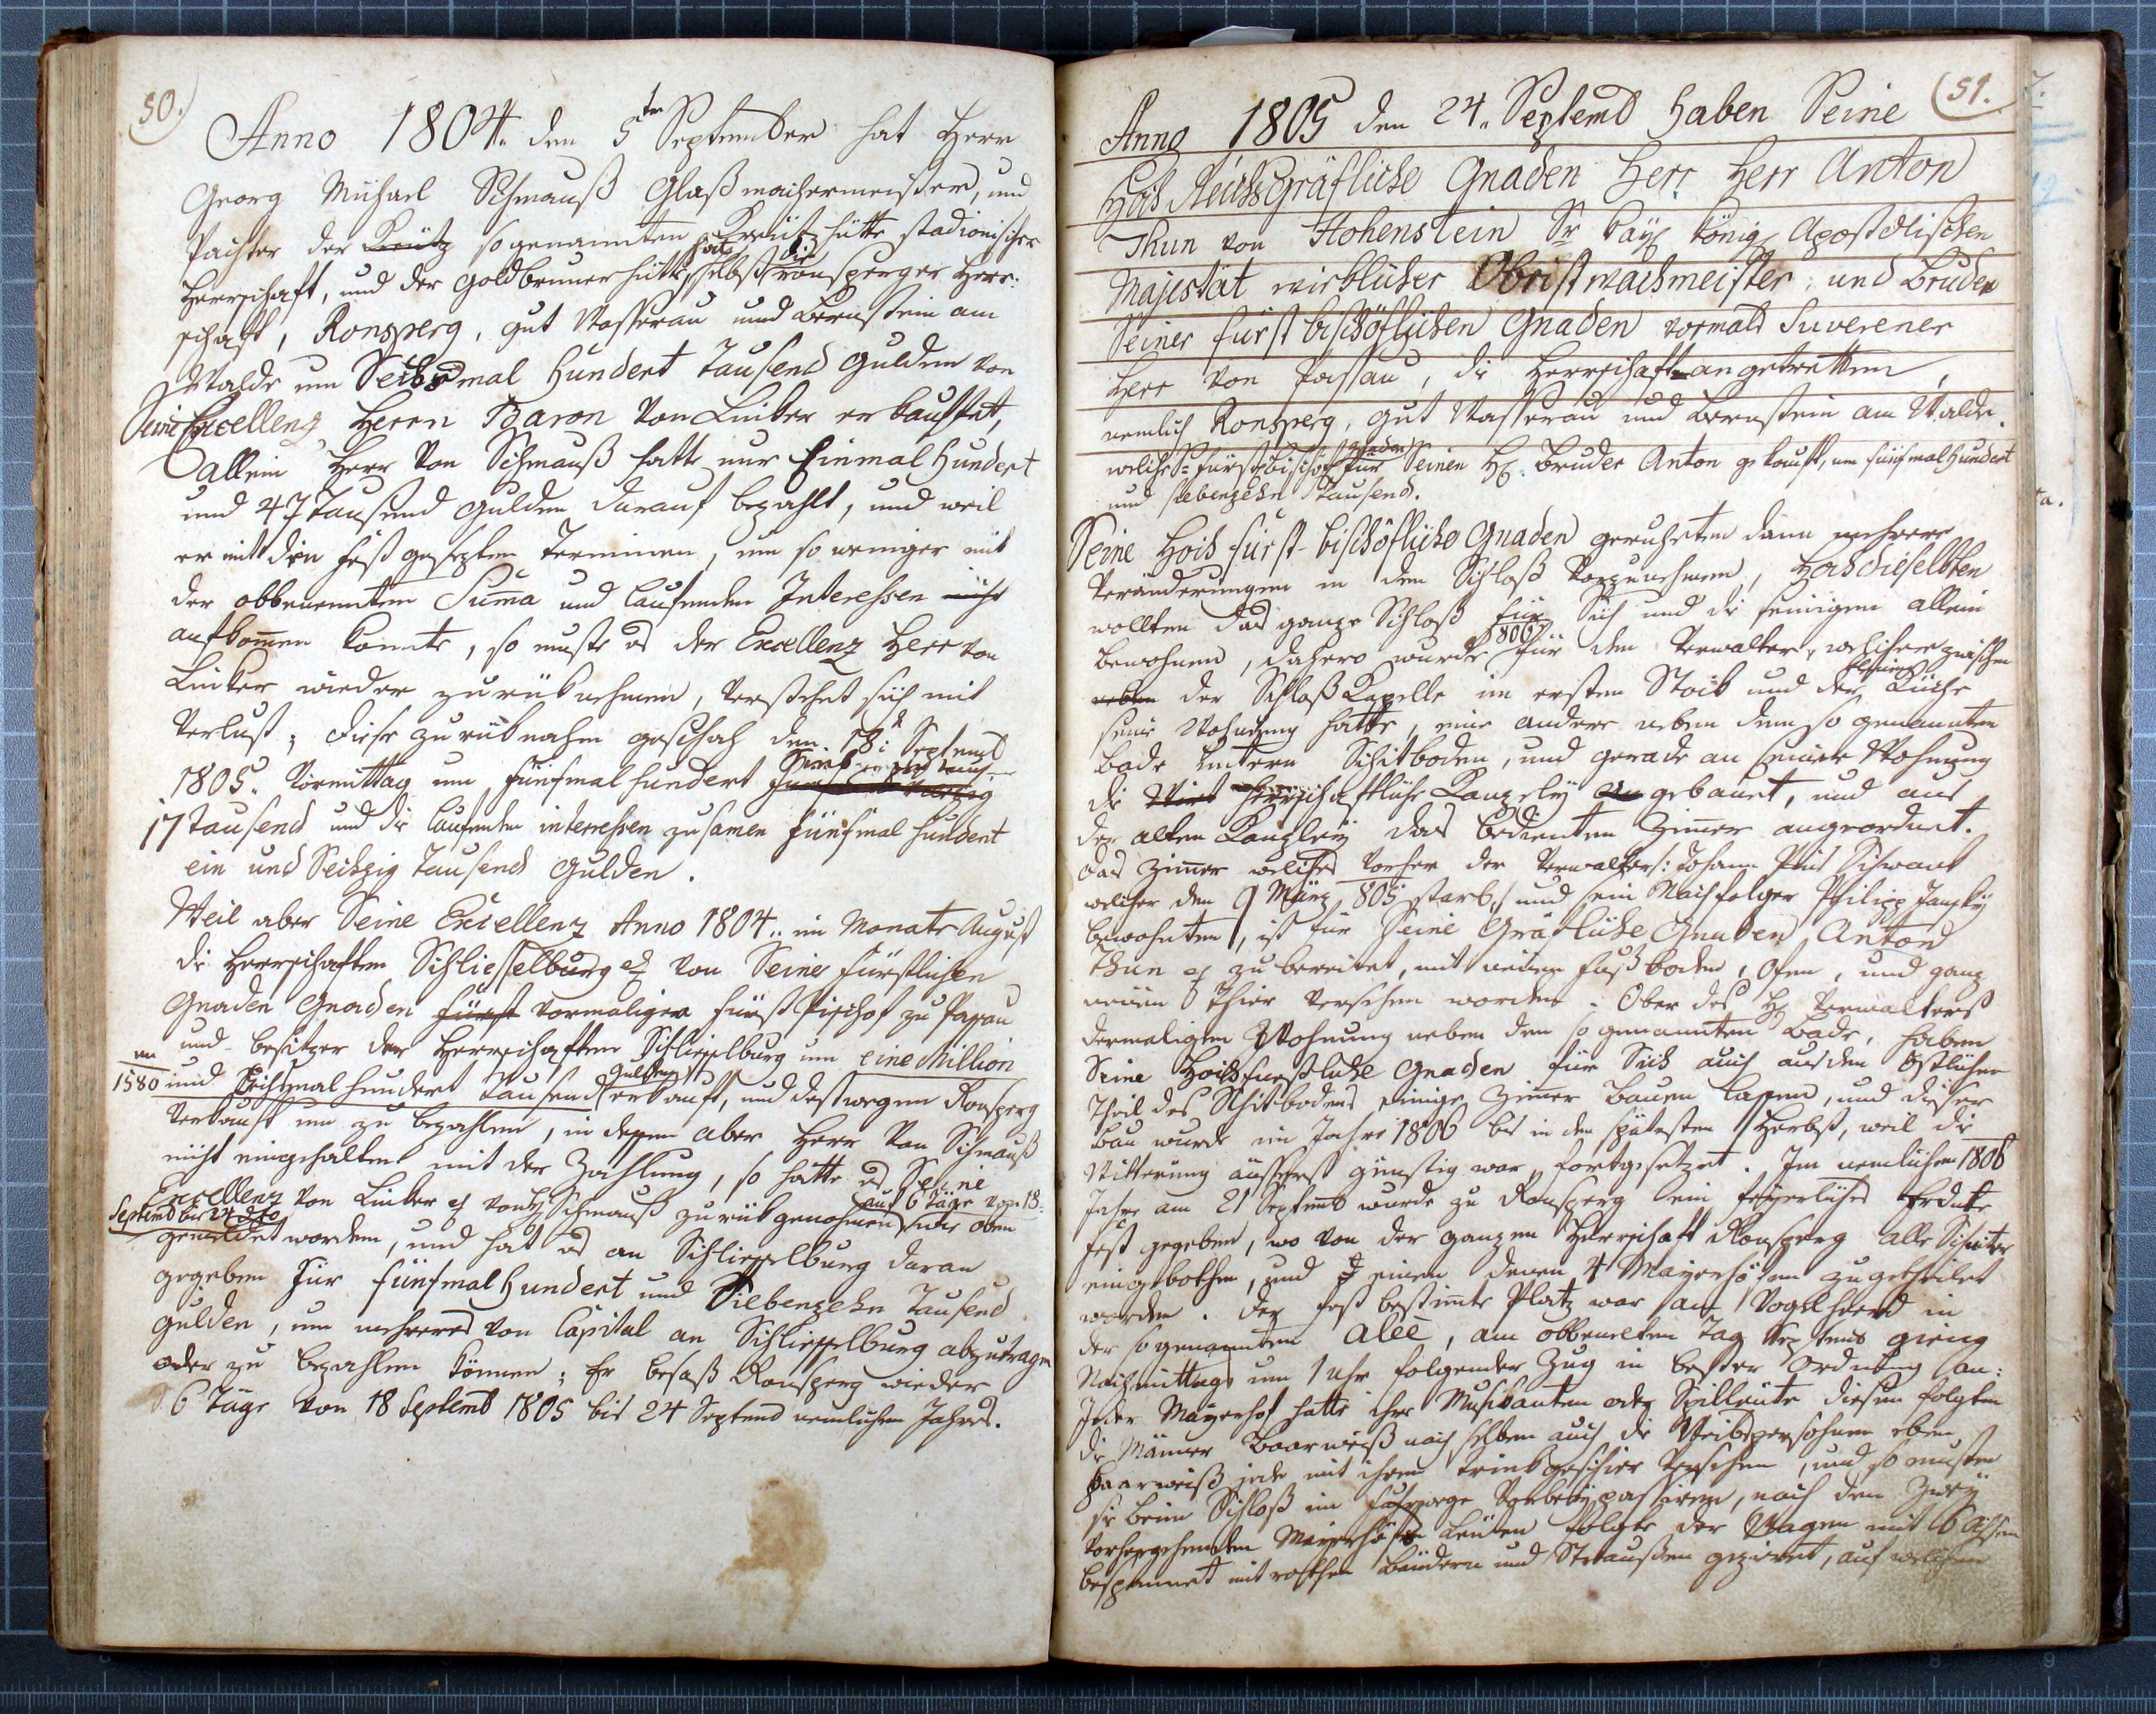 50.
Anno 1804. den 5ten September hat Herr
Georg Michael Schmauß Glaßmachermeister, und
Pachter der Kreütz sogenannten Kreützhütte stadionischer
Herrschaft, und der Goldbrunerhütte, hat selbst die ronsperger Herr:
schaft, Ronsperg, gut Wasserau und Bernstein am
Walde um Sechsmal Hundert Tausend Gulden von
Seine Excellenz Herrn Baron von Linker erkauffet,
allein Herr von Schmauß hatte nur Einmal Hundert
und 47 Tausend Gulden darauf bezahlt, und weil
er mit den fest gesezten Terminen, um so weniger mit
der obbenennten Suma und laufenden Interessen nicht
aufkomen konnte, so muste es der Excellenz Herr von
Linker wieder zurüknehmen, versteht sich mit
Verlust; diese zurüknahm geschah den 18: Septemb
1805. Vormittag um fünfmal hundert
17 tausend und die laufenden interessen zusamen fünfmal hundert
ein und Sechzig Tausend Gulden.
Weil aber Seine Excellenz Anno 1804. im Monate August
die Herrschaften Schliesselburg von Seiner Fürstlichen
Gnaden Gnaden Fürst vormaligen Fürst Pischof zu Passau
und besitzer der Herrschaften Schliesselburg um eine Million
1580 und Sechsmal hundert Tausend Gulden erkauft, und deßwegen Ronsperg
verkauft um zu bezahlen, in dessen aber Herr von Schmauß
nicht eingehalten mit der Zahlung, so hatte es Seine
Excellenz von Linker von Schmauß zurükgenohmen auf 6 Täge vom 18:
Septemb bis 24 dto wie oben
gemeldet worden, und hat es an Schliesselburg daran
gegeben für fünfmal Hundert und Siebenzehn Tausend
Gulden, um mehreres von Capital an Schliesselburg abzutragen
oder zu bezahlen können; Er besaß Ronsperg wieder
6 Täge von 18 Septemb 1805 bis 24 Septemb nemlichen Jahrs.
51.
Anno 1805 den 24. Septemb haben Seine
Hoch Reichsgräfliche Gnaden Herr Herr Anton
Thun von Hohenstein Sr kay. könig. Apostolischen
Majestät wirklicher Obristwachmeister, und Bruder
Seiner fürst bischöflichen Gnaden vormals Suverener
Herr von Passau, die Herrschaft angetretten,
nemlich Ronsperg, gut Wasserau und Bernstein am Walde.
welche Sr fürstbischöf Gnaden für Seinen H. Bruder Anton gekauft, um fünfmal Hundert
und siebenzehn Tausend.
Seine Hoch fürst-bischöfliche Gnaden geruheten dann mehrere
Veränderungen in dem Schloß vorzunehmen, Hochdieselbten
wollten das ganze Schloß für Sich und die seinigen allein
bewohnen, dahero wurde 1806 für den Verwalter, welcher zwischen
neben der Schloß Kapelle im ersten Stock und der kleinen Küche
seine Wohnung hatte, eine andere neben dem so genannten
Bade untern Schitboden, und gerade an seiner Wohnung
die herrschaftliche Kanzeley angebauet, und aus
der alten Kanzley das bedienten Zimer angeordnet.
das Zimer welches vorher der Verwalter /: Johann Schwant
welcher den 9 März 805 starb, und sein Nachfolger Philipp Janzky
bewohnten, ist für Seine Gräfliche Gnaden Anton
Thun zu bereitet, mit neuen fußboden, ofen, und ganz
neüen Thür versehen worden. Ober des H. Verwalters
dermaligen Wohnung neben den so genannten Bade, haben
Seine Hochfürstliche Gnaden für Sich auch aus dem Ostlichen
Theil des Schitbodens einige Zimer bauen lassen, und dieser
bau wurde im Jahre 1806 bis in den spätesten Herbst, weil die
Witterung äusserst günstig war, fortgesetzet. Im nemlichen 1806
Jahre am 21 Septemb wurde zu Ronsperg ein feyerliches Erdnte
fest gegeben, wo von der ganzen Herrschaft Ronsperg alle Schniter
eingebothen, und einen denen 4 Mayerhöfen zugetheilet
worden. der fest bestimte Platz war am Vogelheerd in
der so genannten Aleé, am obbemelten Tag Septemb gieng
Nachmittags um 1 Uhr folgender Zug in bester ordnung an:
Jeder Mayerhof hatte ihre Musikanten oder Spilleüte diesen folgten
die Männer Paarweiß nach selben auch die Weibspersohnen eben
Paarweiß jede mit ihrem Trinkgeschier versehen, und so musten
sie beim Schloß im vorbey passiren, nach den zwey
vorhergehenden Mayerhöfe Leüten folgte der Wagen mit 6 Ochsen
bespannet mit rothen Bändern und Straußen gezieret, auf welchen